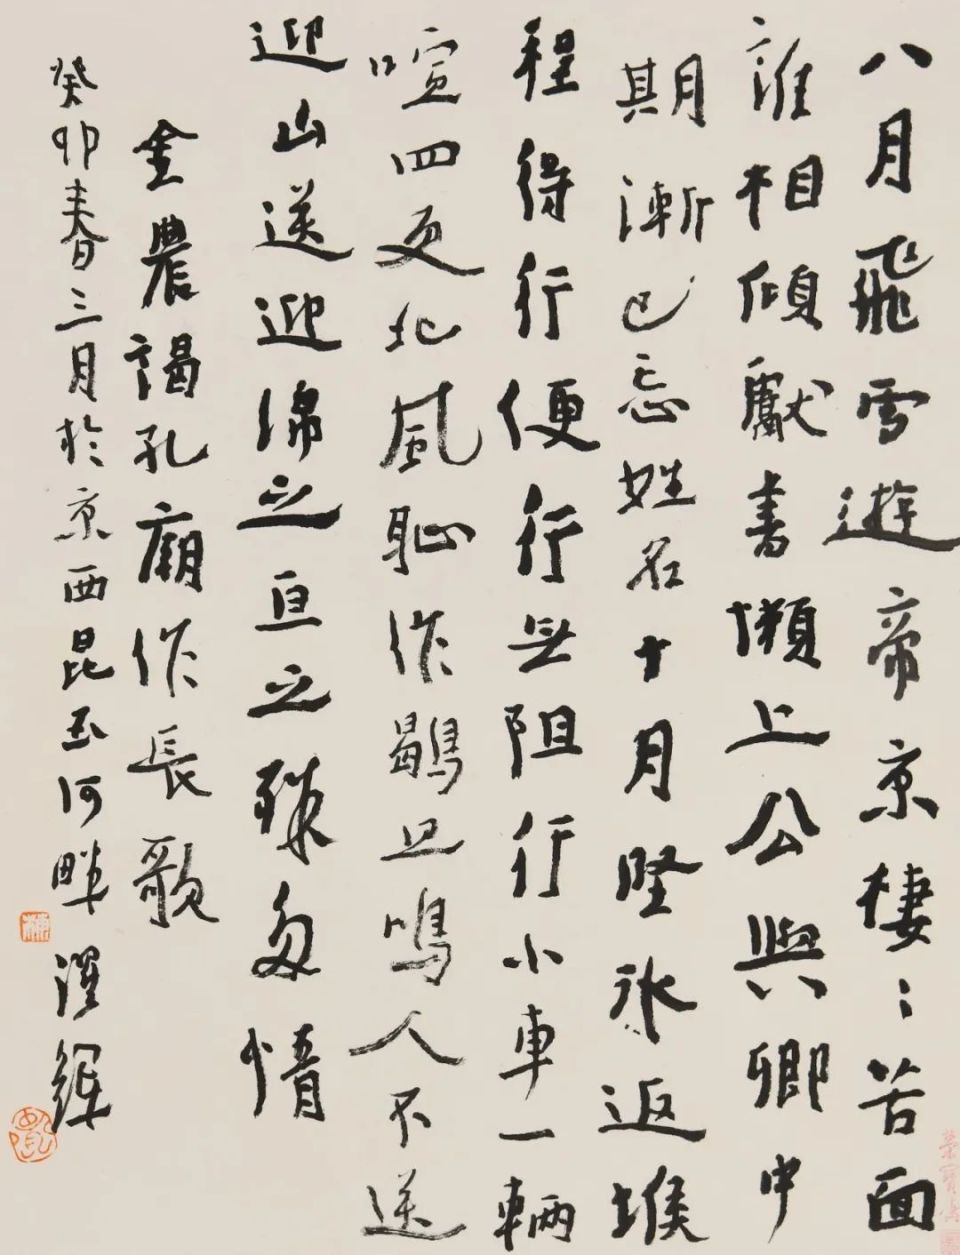 八月飛雪遊帝京棲〻苦面
誰相傾獻書懶上公與卿中
期漸已忘姓名十月堅冰返堠
程得行行便行無阻行行小車一輛
喧四更北風恥作鶡旦鳴人不送
迎山送迎綿之亘之殊多情
金農謁孔廟作長歌
癸卯春三月於京西昆玉河畔